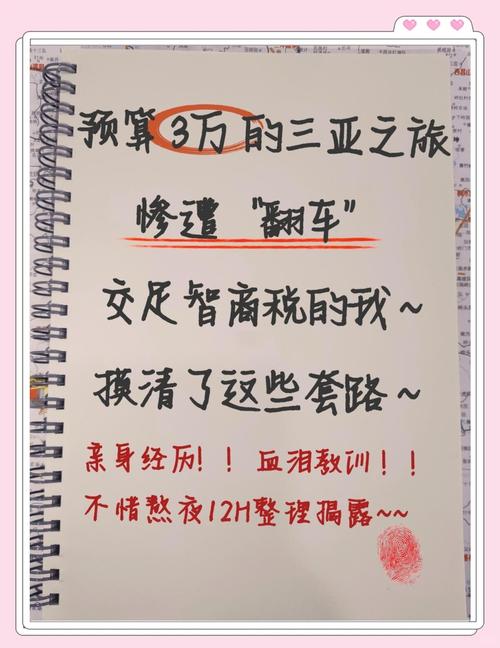 预算3万的三亚之旅
惨遭“翻车”
交足智商税的我~
摸清了这些套路~
亲身经历！！血泪教训！！
不惜熬夜12H整理揭露~~